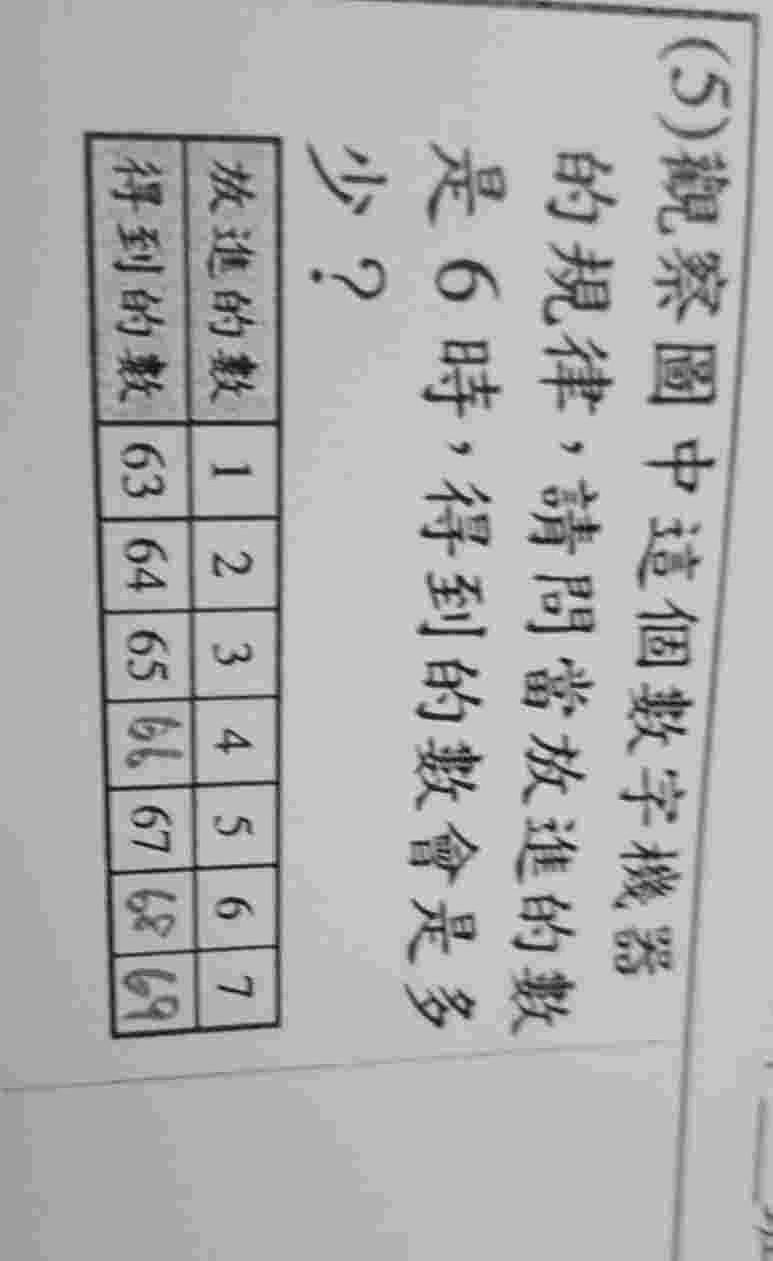 (5)觀察圖中這個數字機器
的規律，請問當放進的數
是6時，得到的數會是多
少？
放進的數 1 2 3 4 5 6 7
得到的數 63 64 65 66 67 68 69